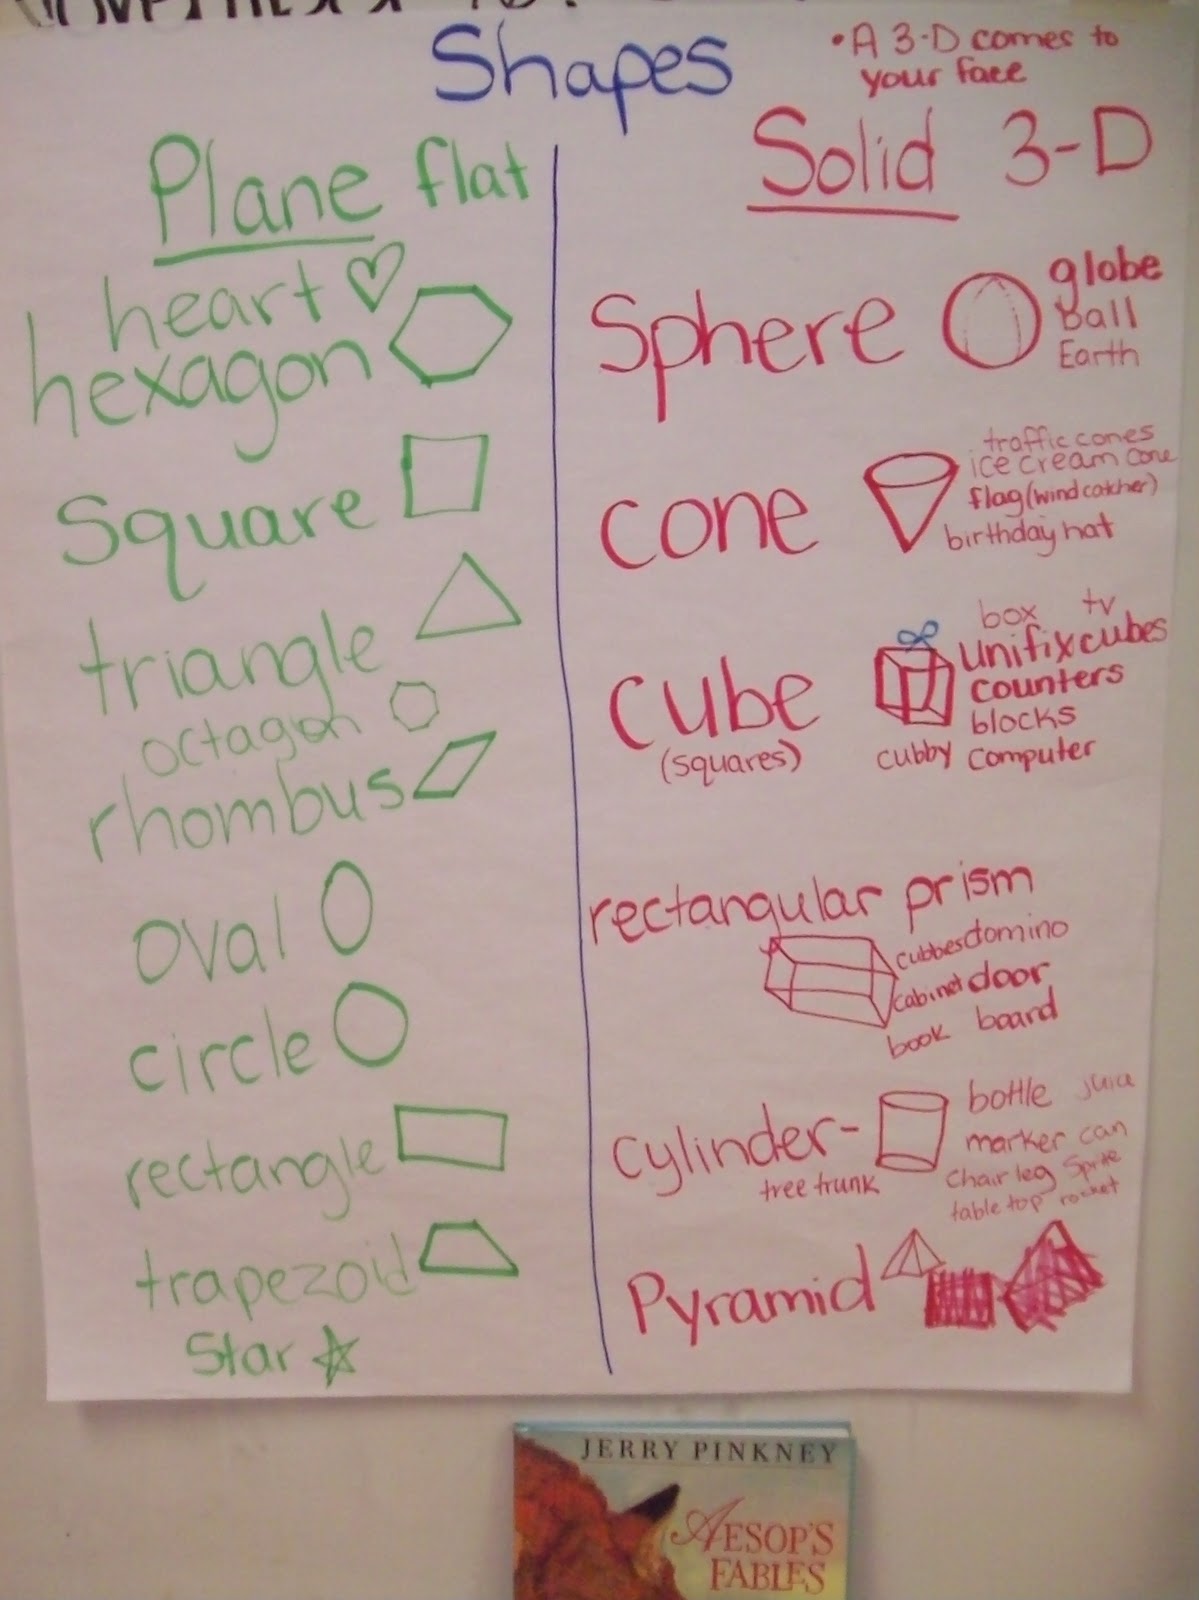 Shapes
• A 3-D comes to
your face
Plane flat
heart
hexagon
Square
triangle
octagon
rhombus
oval
circle
rectangle
trapezoid
Star
Solid 3-D
Sphere
globe
ball
Earth
cone
traffic cones
ice cream cone
flag (wind catcher)
birthday hat
cube
(squares)
box tv
unifix cubes
counters
blocks
cubby computer
rectangular prism
cubbes domino
cabinet door
book board
cylinder-
tree trunk
bottle juice
marker can
chair leg Sprite
table top rocket
Pyramid
JERRY PINKNEY
AESOP'S
FABLES